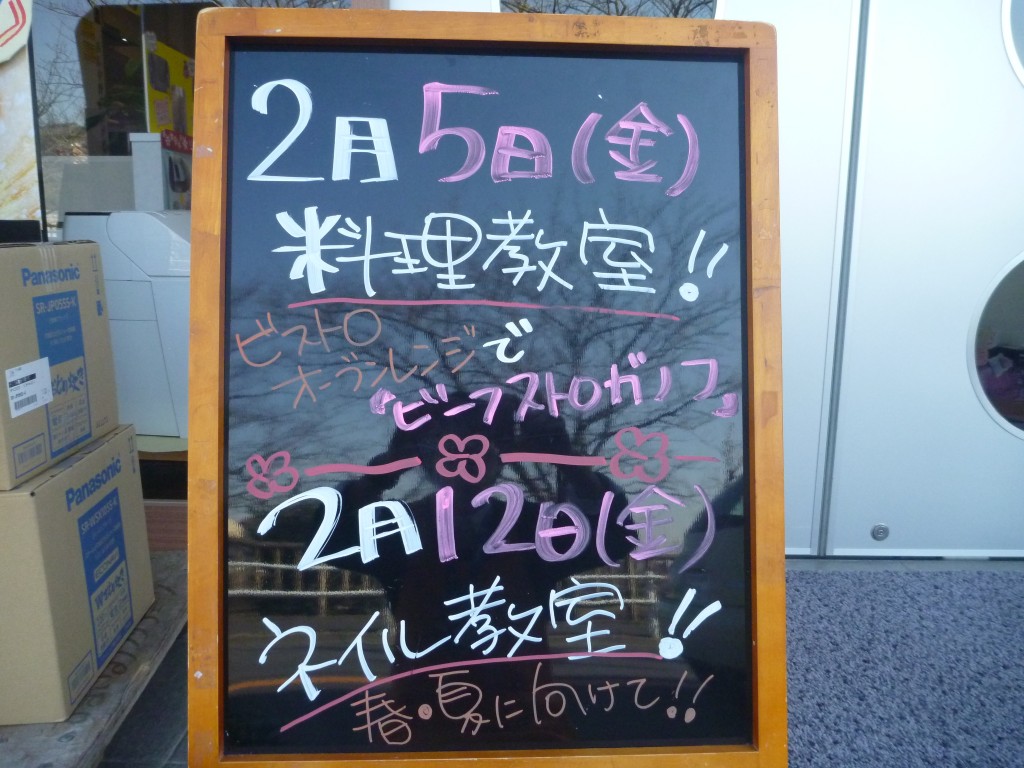 2月5日(金)
料理教室!!
ビストロ
オーブンレンジで
『ビーフストロガノフ』
2月12日(金)
ネイル教室!!
春・夏に向けて!!
Panasonic
SR-JP055S-K
Panasonic